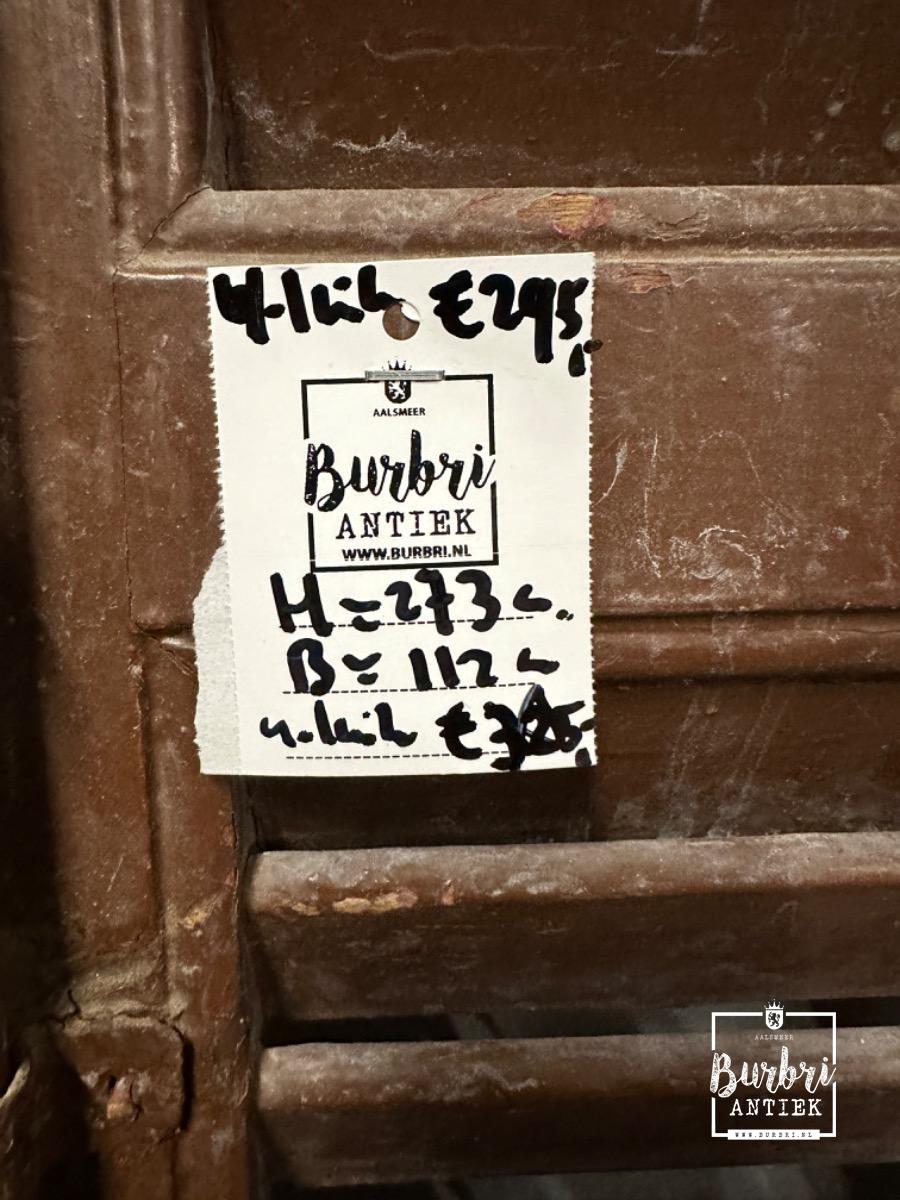 4-luik €295,-
AALSMEER
Burbri
ANTIEK
WWW.BURBRI.NL
H = 273 c.
B = 112 c
4-luik €
AALSMEER
Burbri
ANTIEK
WWW.BURBRI.NL